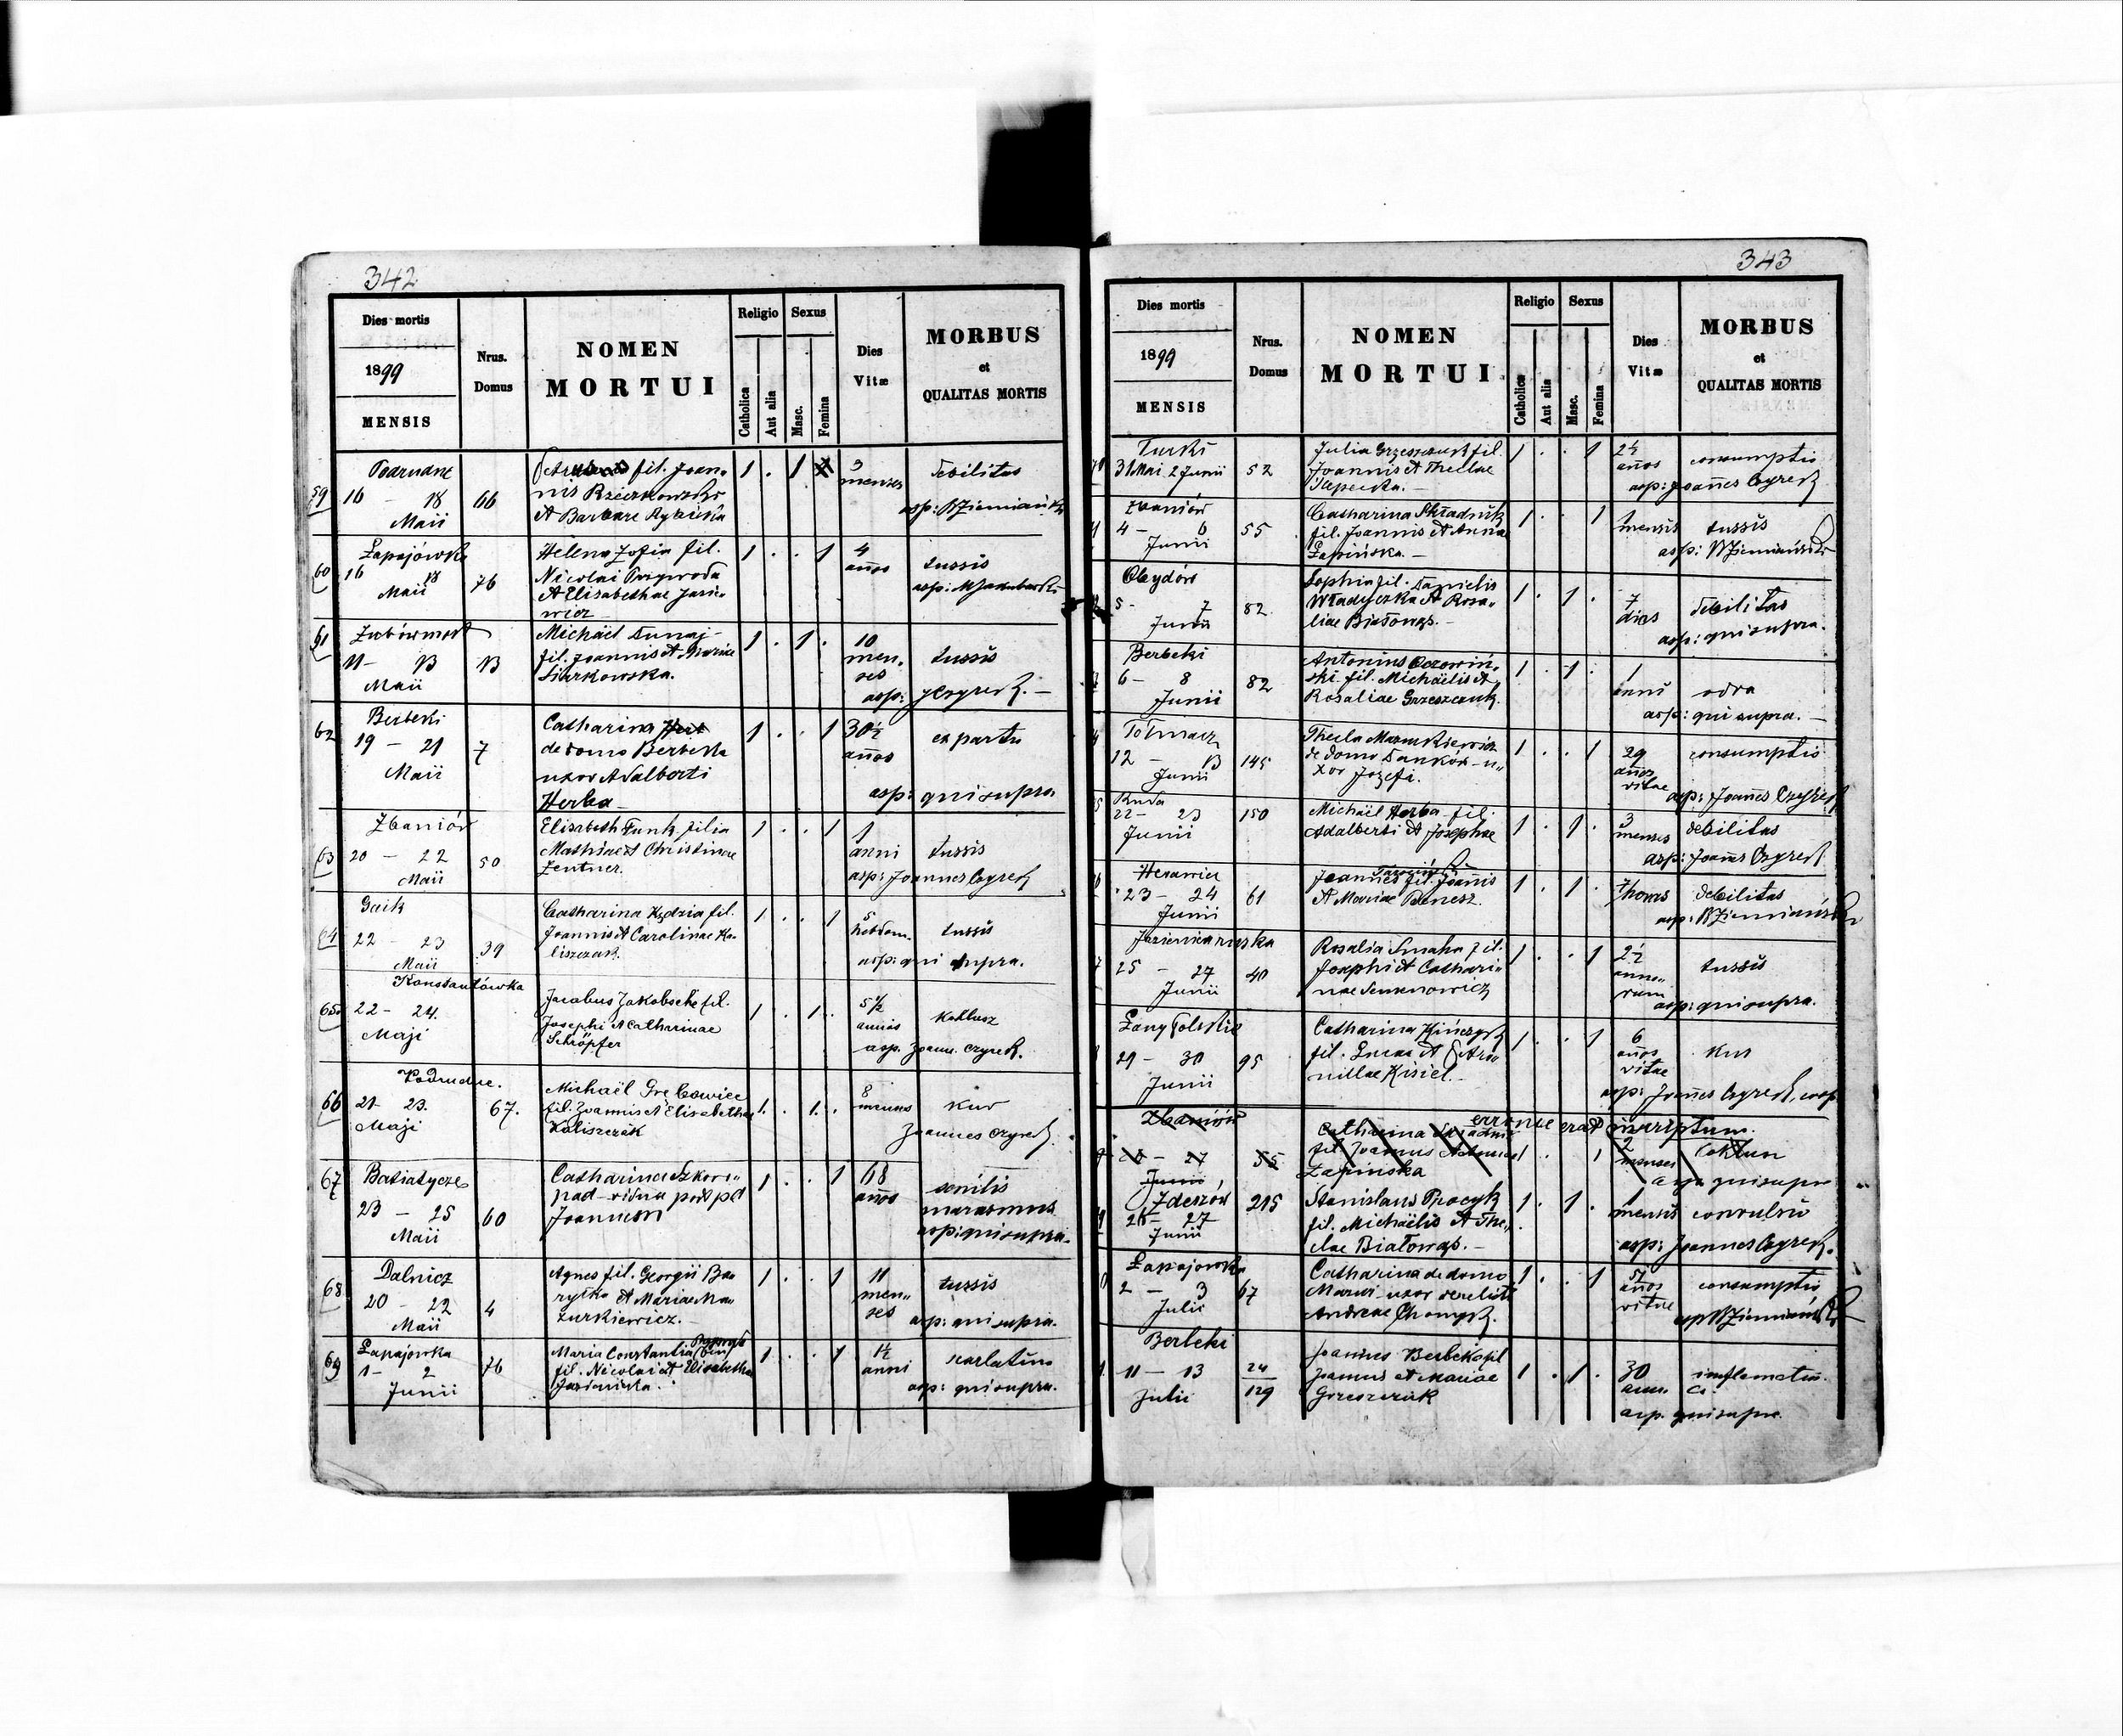 342
Dies mortis
1899
MENSIS
Nrus.
Domus
NOMEN
MORTUI
Religio
Sexus
Catholica
Aut alia
Masc.
Femina
Dies
Vitæ
MORBUS
et
QUALITAS MORTIS
59
Podrudne
16 - 18
Maii
66
fil. Joan„
nis Rzeczkowski
et Barbare Rybicka
1 . 1
3
menses
debilitas
asp: W Ziemiański
60
Łapajówka
16 18
Maii
76
Helena Zofia fil.
Nicolai Przyroda
et Elisabethae Jasie„
wicz
1 . . 1
4
años
tussis
asp:
61
Żubówmost
11 - 13
Maii
13
Michäel Dunaj
fil. Joannis et Mariae
Siarkowska.
1 . 1 .
10
men„
ses
tussis
asp: J Czyrek. —
62
Berbeki
19 - 21
Maii
7
Catharina
de domo Berbeka
uxor Adalberti
Herba
1 . . 1
30½
años
ex partu
asp: qui supra
63
Zbaniów
20 - 22
Maii
50
Elisabeth Funk filia
Mathiae et Christinae
Zentner.
1 . . 1
1
anni
tussis
asp: Joannes Czyrek
64
Gaik
22 - 23
Maii
39
Catharina Kędzia fil.
Joannis et Carolinae Ka„
liszczak.
1 . . 1
5
hebdom.
tussis
asp: qui supra.
65
Konstantówka
22 - 24.
Maji
Jacobus Jakobsche fil.
Josephi et Catharinae
Schröpfer
1 . 1 .
5½
annis
Koklusz
asp. Joann. Czyrek.
66
Podrudne.
21 23.
Maji
67.
Michaël Grebowiec
fil. Joannis et Elisabethae
Kaliszczak
1 . 1 .
8
menses
Kur
Joannes Czyrek.
67
Batiatycze
23 - 25
Maii
60
Catharina Szkoro„
pad - vidua post pd
Joannem
1 . . 1
68
años
senilis
marasmus
asp: qui supra.
68
Dalnicz
20 - 22
Maii
4
Agnes fil. Georgii Ba„
rylka et Mariae Ma„
zurkiewicz. -
1 . . 1
11
men„
ses
tussis
asp: qui supra.
69
Łapajówka
1 - 2
Junii
76
Maria Constantia
fil. Nicolai et Elisabethae
1 . . 1
1½
anni
scarlatina
asp: qui supra.
343
Dies mortis
1899
MENSIS
Nrus.
Domus
NOMEN
MORTUI
Religio
Sexus
Catholica
Aut alia
Masc.
Femina
Dies
Vitæ
MORBUS
et
QUALITAS MORTIS
Turki
31 Mai 2 Junii
52
Julia Grzeszczuk fil.
Joannis et Theclae
1 . . 1
2½
años
consumptio
asp: Joañes Czyrek
Zbaniów
4 - 6
Junii
55
Catharina Składnik
fil. Joannis et Anna
Łapińska. —
1 . . 1
1
mensis
tussis
asp: W Ziemiański
Obydów
5 - 7
Junii
82
Sophia fil. Danielis
Władyczka et Rosa„
liae Białowąs. -
1 . 1 .
7
dies
debilitas
asp: qui supra.
Berbeki
6 - 8
Junii
82
Antonius
ski fil. Michäelis et
Rosaliae Grzeszczuk.
1 . 1 .
1
anni
odra
asp: qui supra. —
Tołmacz
12 - 13
Junii
145
Thecla Mazurkiewicz
de domo Danków - u„
xor Jozefi.
1 . . 1
29
años
vitae
consumptio
asp: Joañes Czyrek
Ruda
22 - 23
Junii
150
Michäel Herba fil.
Adalberti et Josephae
1 . 1 .
3
menses
debilitas
asp: Joañes Czyrek
23 - 24
Junii
61
Joannes fil. Joañis
et Mariae Benesz.
1 . 1 .
7 horas
debilitas
asp: W Ziemiański
Jazienica ruska
25 - 27
Junii
40
Rosalia Smaha fil.
Josephi et Cathari„
nae Semenowicz
1 . . 1
2½
anno„
rum
tussis
asp: qui supra.
Łany Polskie
29 - 30
Junii
95
Catharina
fil. Lucae et
Kisiel. -
1 . . 1
6
años
vitae
Kur
asp: Joañes Czyrek, coop.
erronee erat inscriptum.
Zbaniów
27
Junii
55
Catharina
fil. Joannis et Annae
Łapinska
1 . 1
2
menses
Koklusz
asp. qui supra
Zdeszów
26 - 27
Junii
215
Stanislaus Procyk
fil. Michäelis et The„
clae Białowąs. —
1 . 1 .
1
mensis
convulsio
asp: Joannes Czyrek.
Łapajówka
2 - 3
Julii
67
Catharina de domo
Mazur - uxor derelicta
Andreae
1 . . 1
51
años
vitae
consumptio
asp W Ziemiański
Berbeki
11 - 13
Julii
24
129
Joannes Berbeka fil
Joannis et Mariae
Grzeszczuk
1 . 1 .
30
ann.
asp. qui supra.